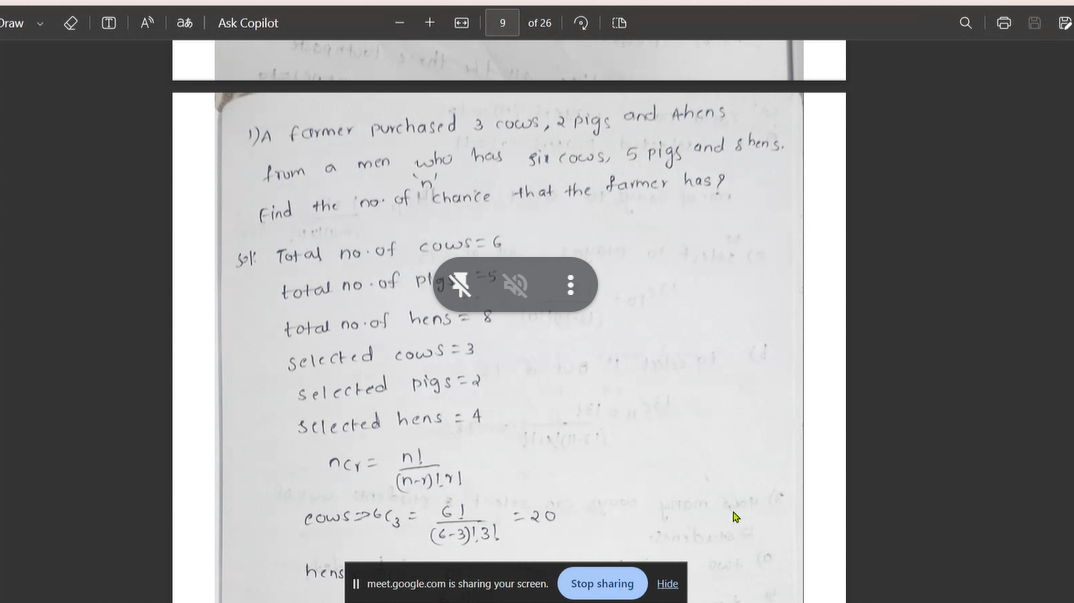 Draw
Ask Copilot
9 of 26
1) A farmer purchased 3 cows, 2 pigs and 4hens
from a men who has six cows, 5 pigs and 8 hens.
'n'
Find the no. of chance that the farmer has?
Sol: Total no. of cows = 6
total no. of pig = 5
total no. of hens = 8
selected cows = 3
selected pigs = 2
selected hens = 4
nCr = n! / (n-r)! r!
cows => 6C3 = 6! / (6-3)! 3! = 20
hens
meet.google.com is sharing your screen. Stop sharing Hide